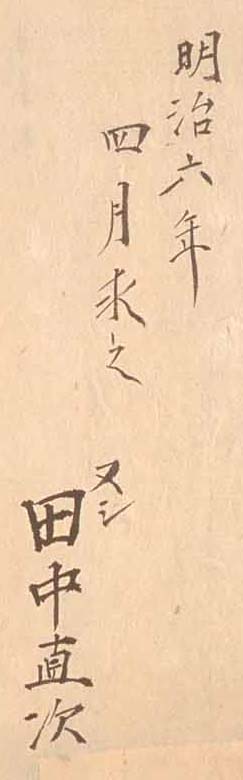 明治六年
四月求之
ヌシ
田中直次